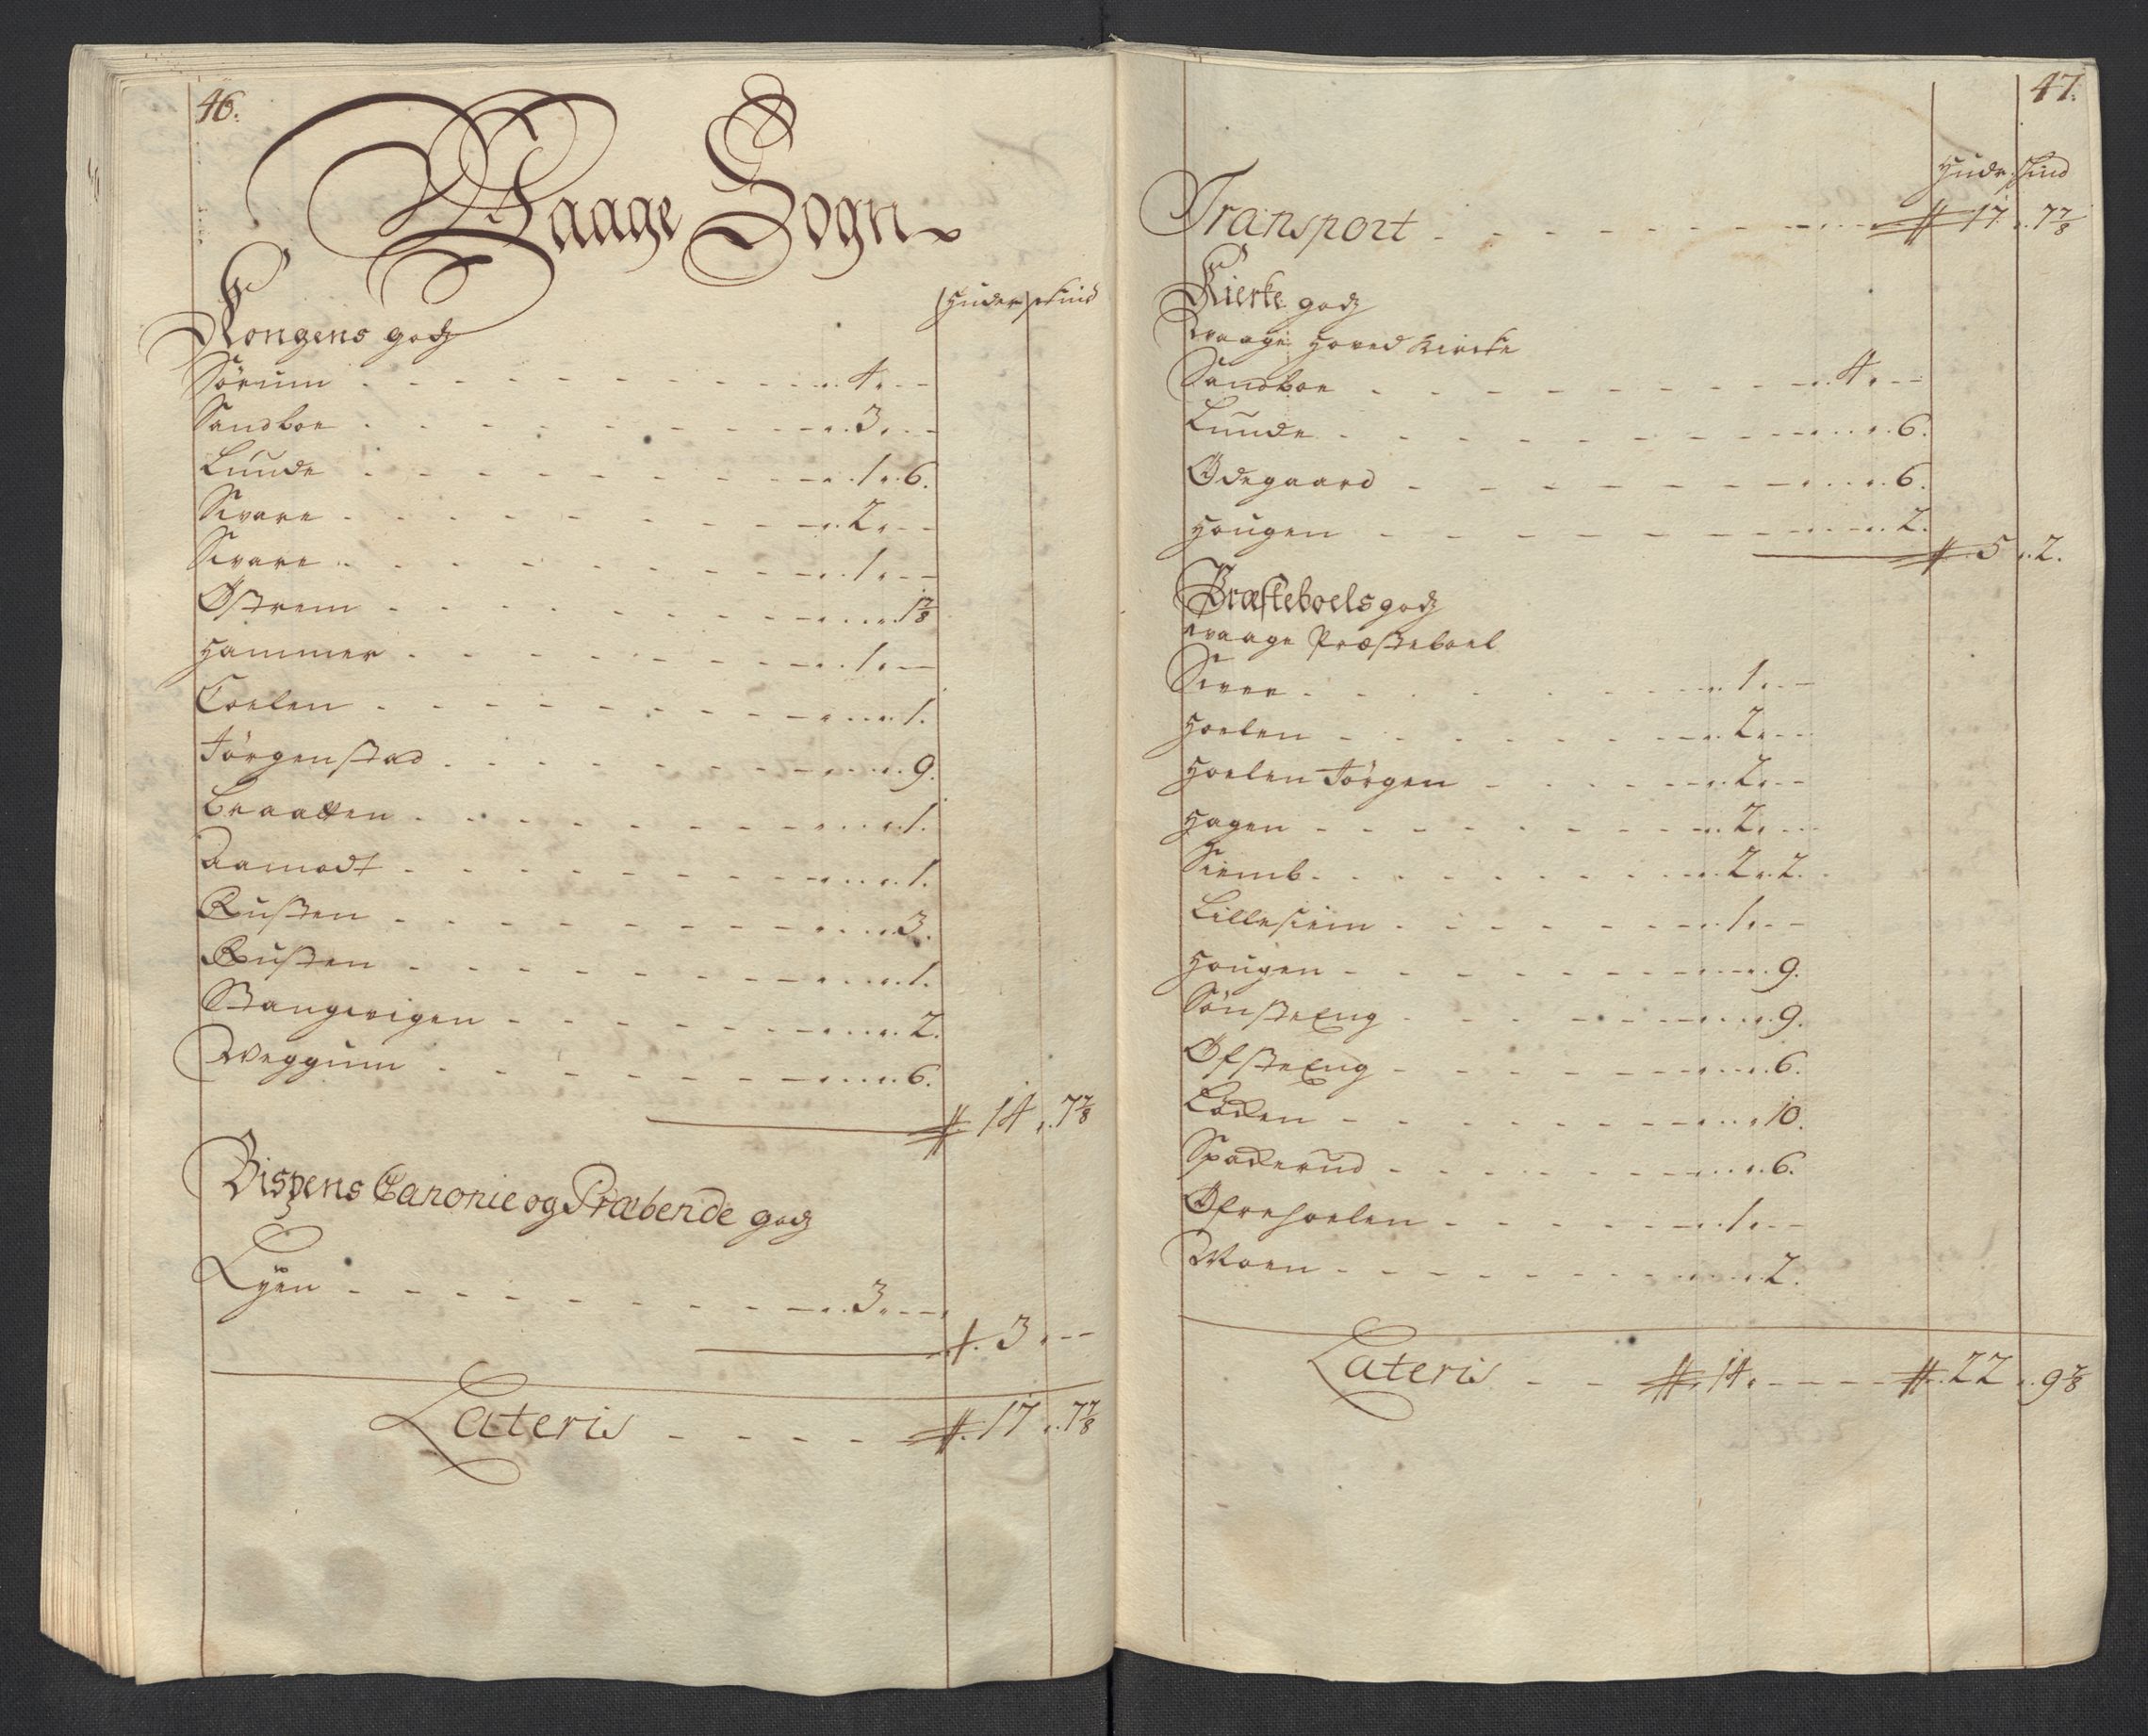 46.
Waage Sogn
Huder Skind
Kongens godz
Sörum - - - 4 . - -
Sandboe - - - 3 . - -
Lunde - - - 1 . 6.
Svare - - - 2 . - -
Svare - - - 1 . - -
Östrem - - - 1 7/8
Hammer - - - 1 . - -
Coelen - - - 1.
Jörgenstad - - - 9.
Braatten - - - 1.
Aamodt - - - 1.
Rusten - - - 3.
Rusten - - - 1.
Stangvigen - - - 2.
Weggum - - - 6.
# 14 . 7 7/8
Bispens Canonie og Præbende godz
Lÿen - - - 3 . - -
# 3 . - -
Lateris - - - # 17 . 7 7/8
47.
Hudr Skind
Transport - - - # 17 . 7 7/8
Kierke godz
Waage Hoved Kircke
Sandboe - - - 4 . - -
Lunde - - - 6.
Ödegaard - - - 6.
Hougen - - - 2.
# 5 . 2.
Præsteboels godz
Waage Præsteboel
- - - 1 . - -
Hoelen - - - 2 . - -
Hoelen Jörgen - - - 2 . - -
Hagen - - - 2 . - -
Siemb - - - 2 . 2.
Lillesiem - - - 1 . - -
Hougen - - - 9.
Sönste Eng - - - 9.
Öfste Eng - - - 6.
Löcken - - - 10.
Spackerud - - - 6.
Öfrehoelen - - - 1 . - -
Moen - - - 2.
Lateris - - # 14 . - - - - # 22 . 9 7/8